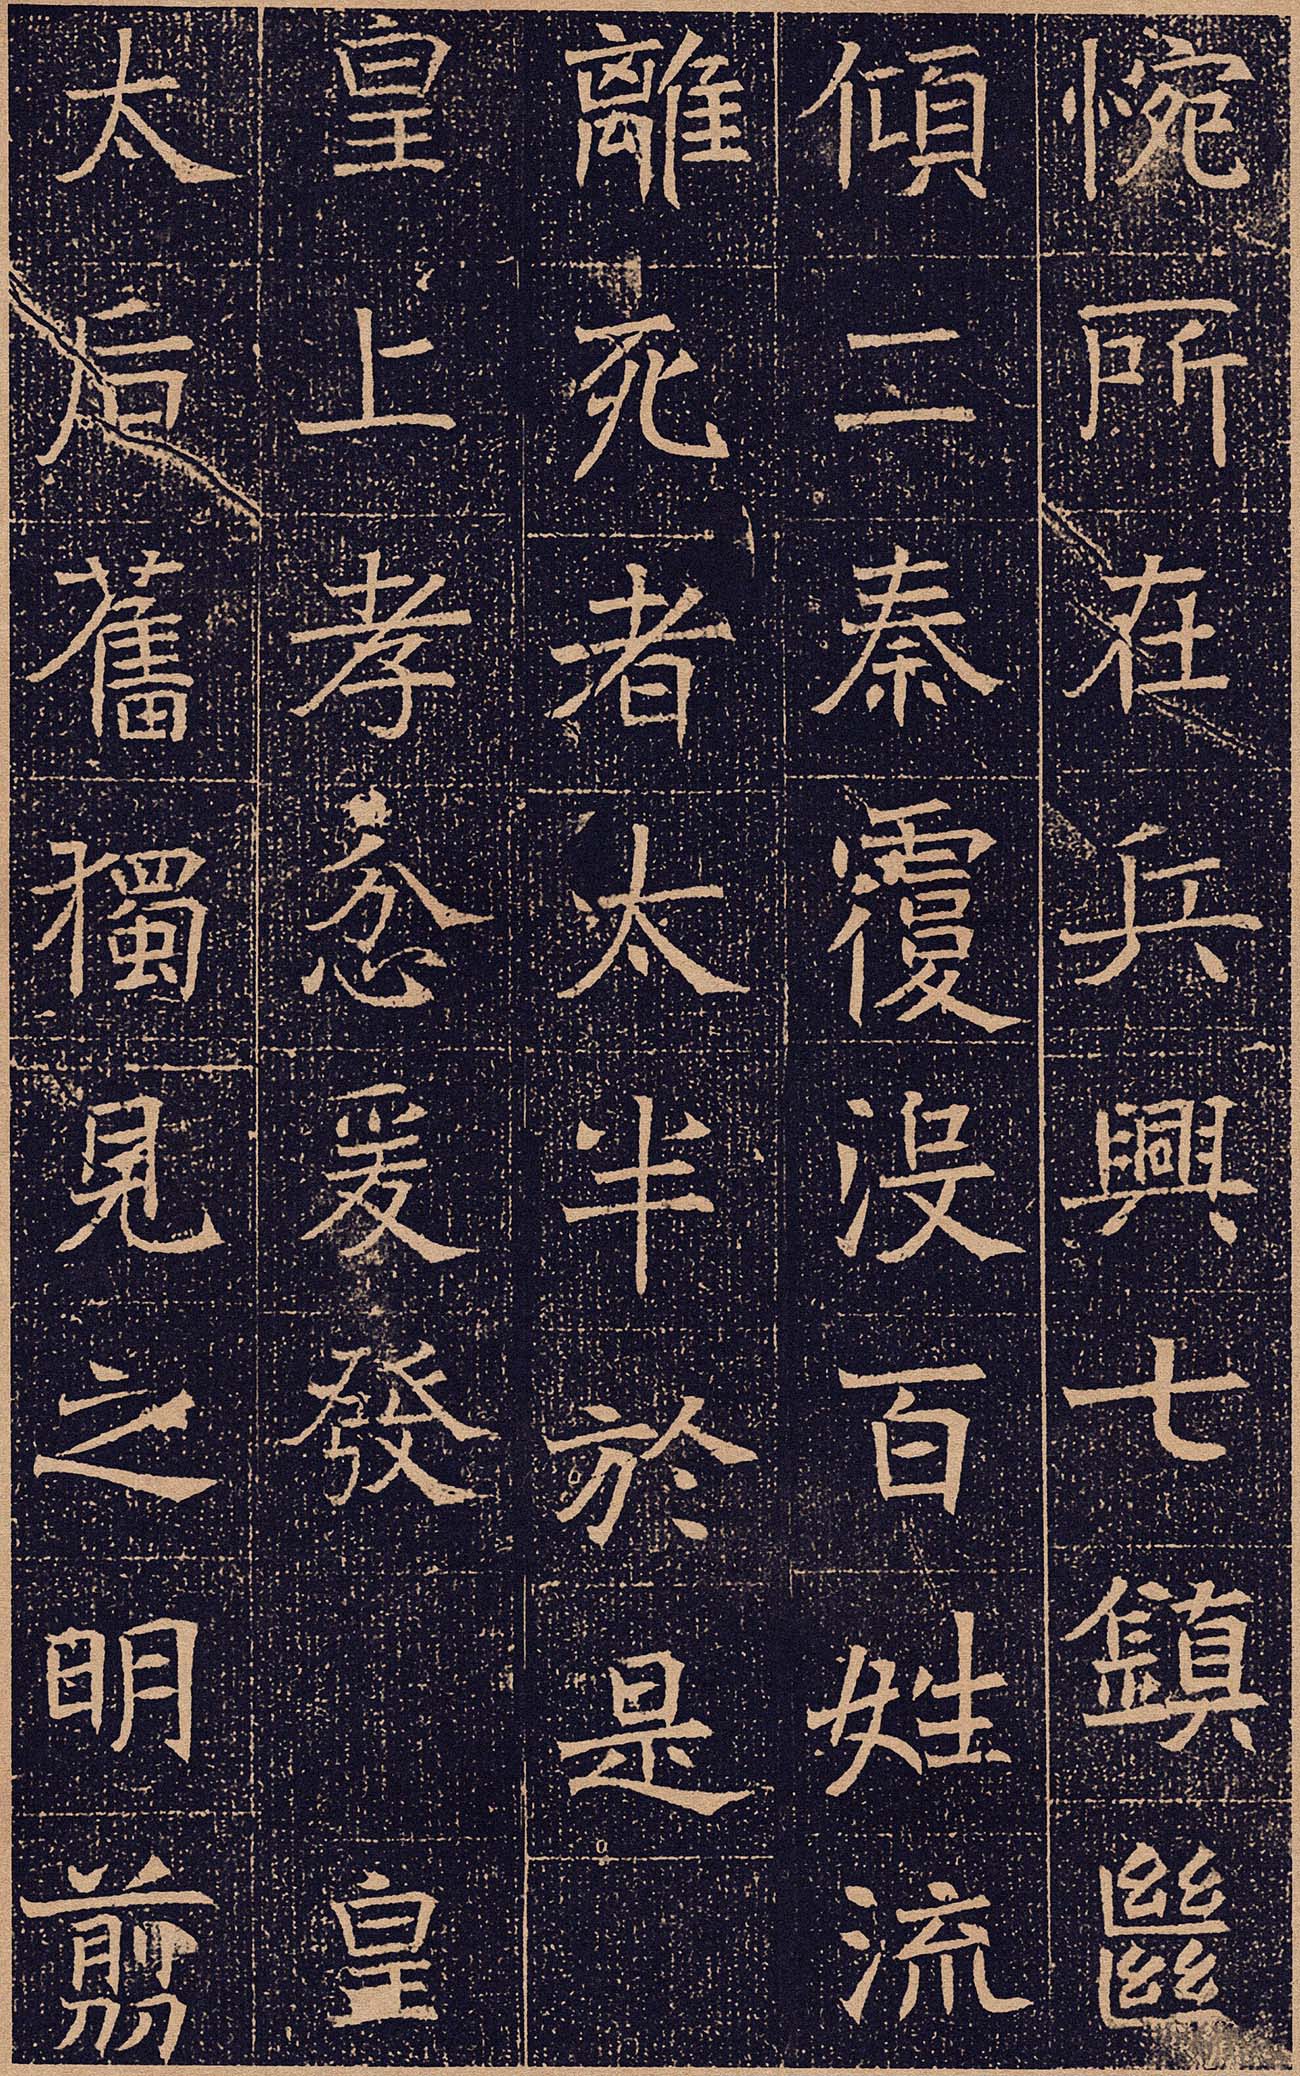 惋所在兵興七鎮㡭
傾二秦覆沒百姓流
離死者太半於是
皇上孝忿爰發　皇
太后奮獨見之明翦